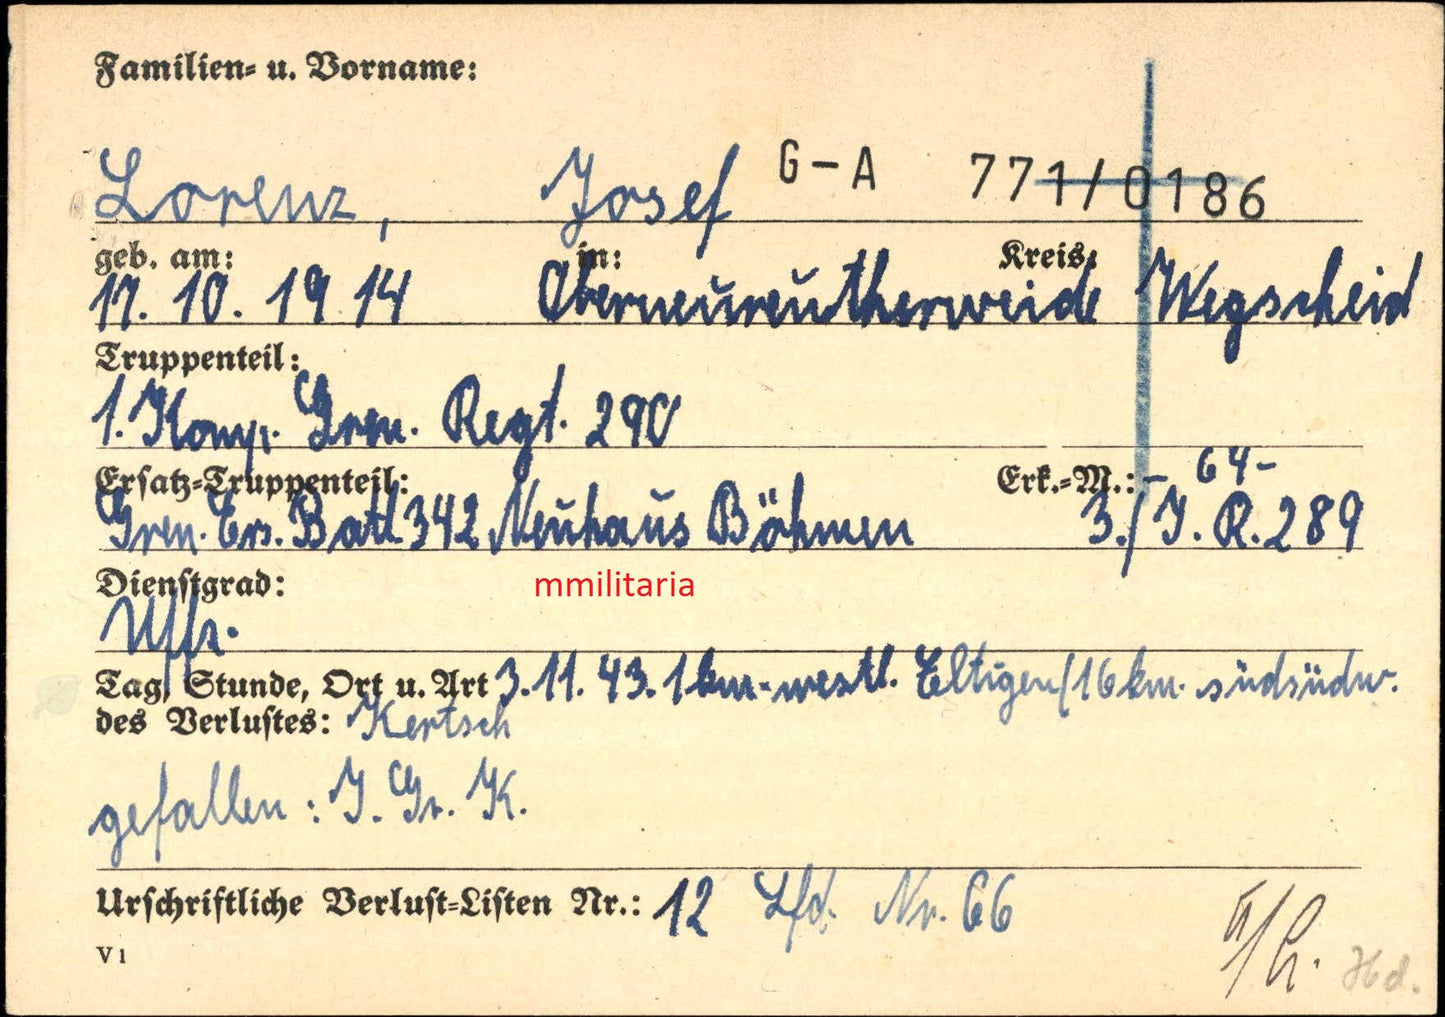 Familien- u. Vorname:
Lorenz, Josef G-A 771/0186
geb. am: in: Kreis:
17. 10. 1914 Oberneureutherweide Wegscheid
Truppenteil:
1. Komp. Gren. Regt. 290
Ersatz-Truppenteil: Erk.-M.: -64-
Gren. Ers. Batl. 342 Neuhaus Böhmen 3./J.R. 289
Dienstgrad:
mmilitaria
Uffz.
Tag, Stunde, Ort u. Art 3.11.43. 1 km westl. Eltigen/16 km südsüdw.
des Verlustes: Kertsch
gefallen: J. Gr. K.
Urschriftliche Verlust-Listen Nr.: 12 Lfd. Nr. 66
V 1